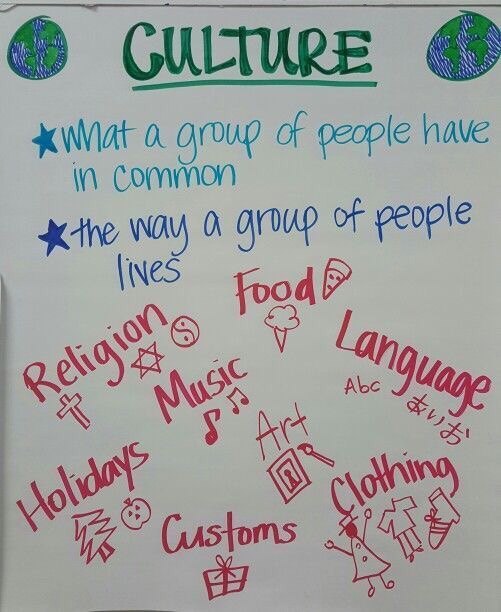 CULTURE
What a group of people have
in common
the way a group of people
lives
Food
Religion
Language
Abc
あいお
Music
Art
Holidays
Clothing
Customs